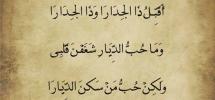 أقبل ذا الجدارا وذا الجدارا
وما حب الديار شغفن قلبى
ولكن حب من سكن الديارا